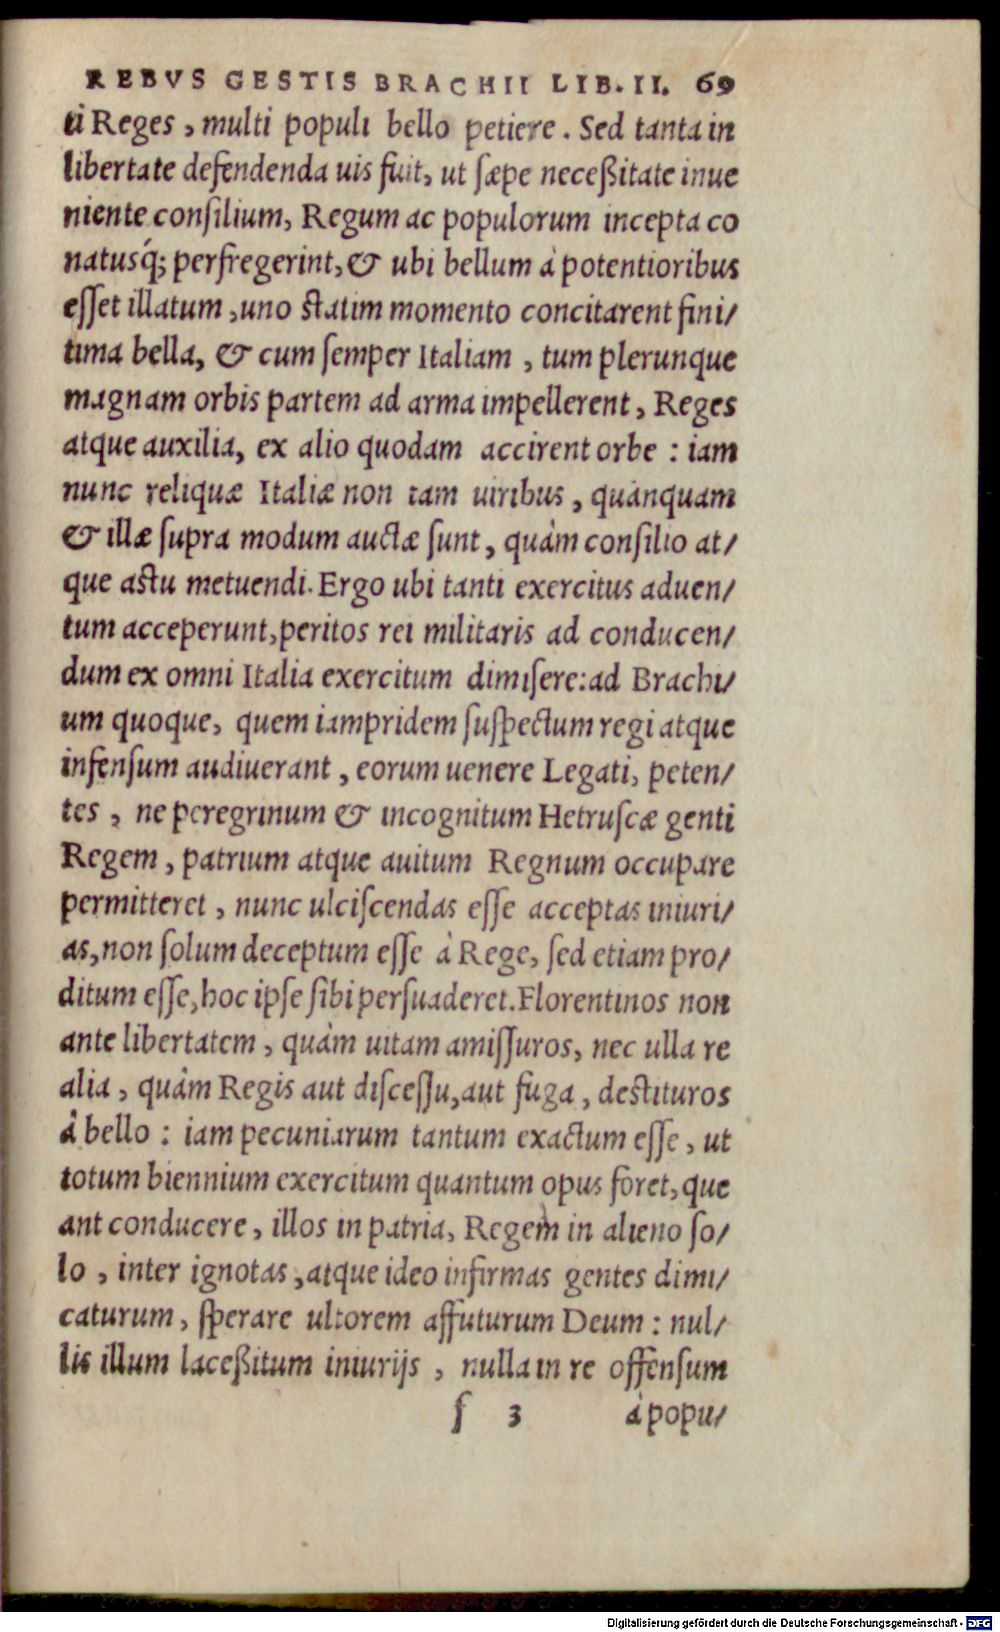 REBVS GESTIS BRACHII LIB. II. 69
ti Reges, multi populi bello petiere. Sed tanta in
libertate defendenda uis fuit, ut sæpe neceßitate inue
niente consilium, Regum ac populorum incepta co
natusq́; perfregerint, & ubi bellum à potentioribus
esset illatum, uno statim momento concitarent fini/
tima bella, & cum semper Italiam, tum plerunque
magnam orbis partem ad arma impellerent, Reges
atque auxilia, ex alio quodam accirent orbe: iam
nunc reliquæ Italiæ non tam uiribus, quánquam
& illæ supra modum auctæ sunt, quàm consilio at/
que astu metuendi. Ergo ubi tanti exercitus aduen/
tum acceperunt, peritos rei militaris ad conducen/
dum ex omni Italia exercitum dimisere: ad Brachi/
um quoque, quem iampridem suspectum regi atque
infensum audiuerant, eorum uenere Legati, peten/
tes, ne peregrinum & incognitum Hetruscæ genti
Regem, patrium atque auitum Regnum occupare
permitteret, nunc ulciscendas esse acceptas iniuri/
as, non solum deceptum esse à Rege, sed etiam pro/
ditum esse, hoc ipse sibi persuaderet. Florentinos non
ante libertatem, quàm uitam amissuros, nec ulla re
alia, quàm Regis aut discessu, aut fuga, destituros
à bello: iam pecuniarum tantum exactum esse, ut
totum biennium exercitum quantum opus foret, que
ant conducere, illos in patria, Regem in alieno so/
lo, inter ignotas, atque ideo infirmas gentes dimi/
caturum, sperare ultorem affuturum Deum: nul/
lis illum laceßitum iniurijs, nulla in re offensum
f 3 à popu/
Digitalisierung gefördert durch die Deutsche Forschungsgemeinschaft - DFG